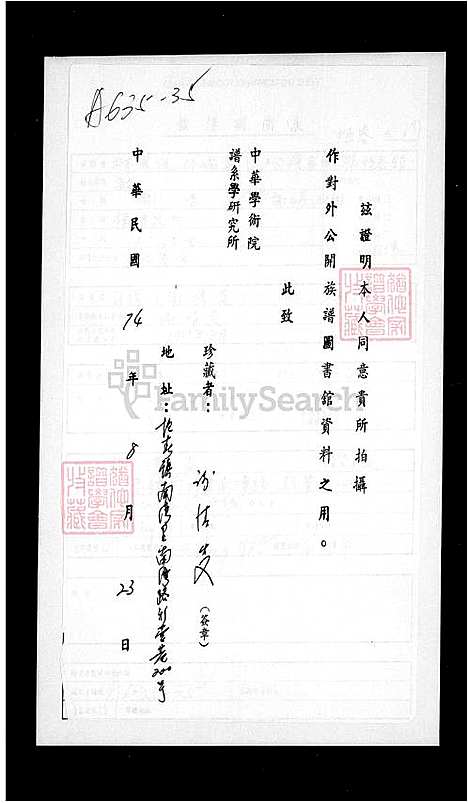 A635-35
茲證明本人同意貴所拍攝
作對外公開族譜圖書館資料之用。
此致
中華學術院
譜系學研究所
珍藏者：
（簽章）
地址：恆春鎮南灣里南灣路
200号
中華民國 74 年 8 月 23 日
FamilySearch